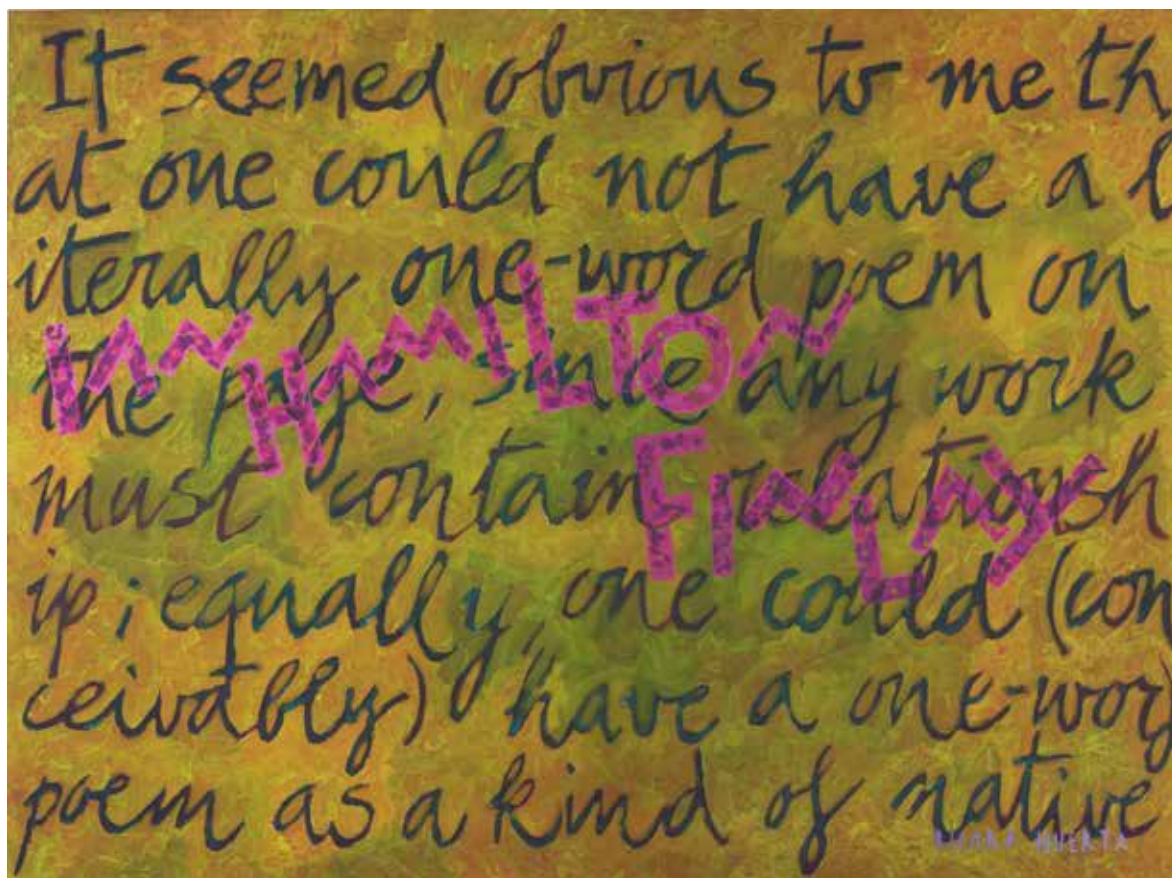 It seemed obvious to me th
at one could not have a l
iterally one-word poem on
IAN HAMILTON
the page, since any work
FINLAY
must contain relationsh
ip; equally, one could (con
ceivably) have a one-word
poem as a kind of native
HUERTA